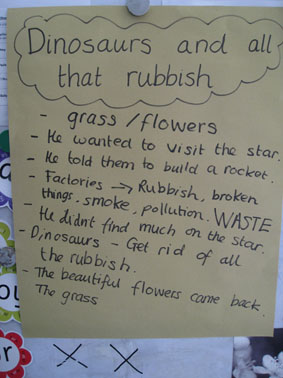 Dinosaurs and all
that rubbish
- grass/flowers
- He wanted to visit the star.
- He told them to build a rocket.
- Factories → Rubbish, broken
things, smoke, pollution. WASTE
- He didnt find much on the star.
- Dinosaurs - Get rid of all
the rubbish.
- The beautiful flowers came back.
The grass